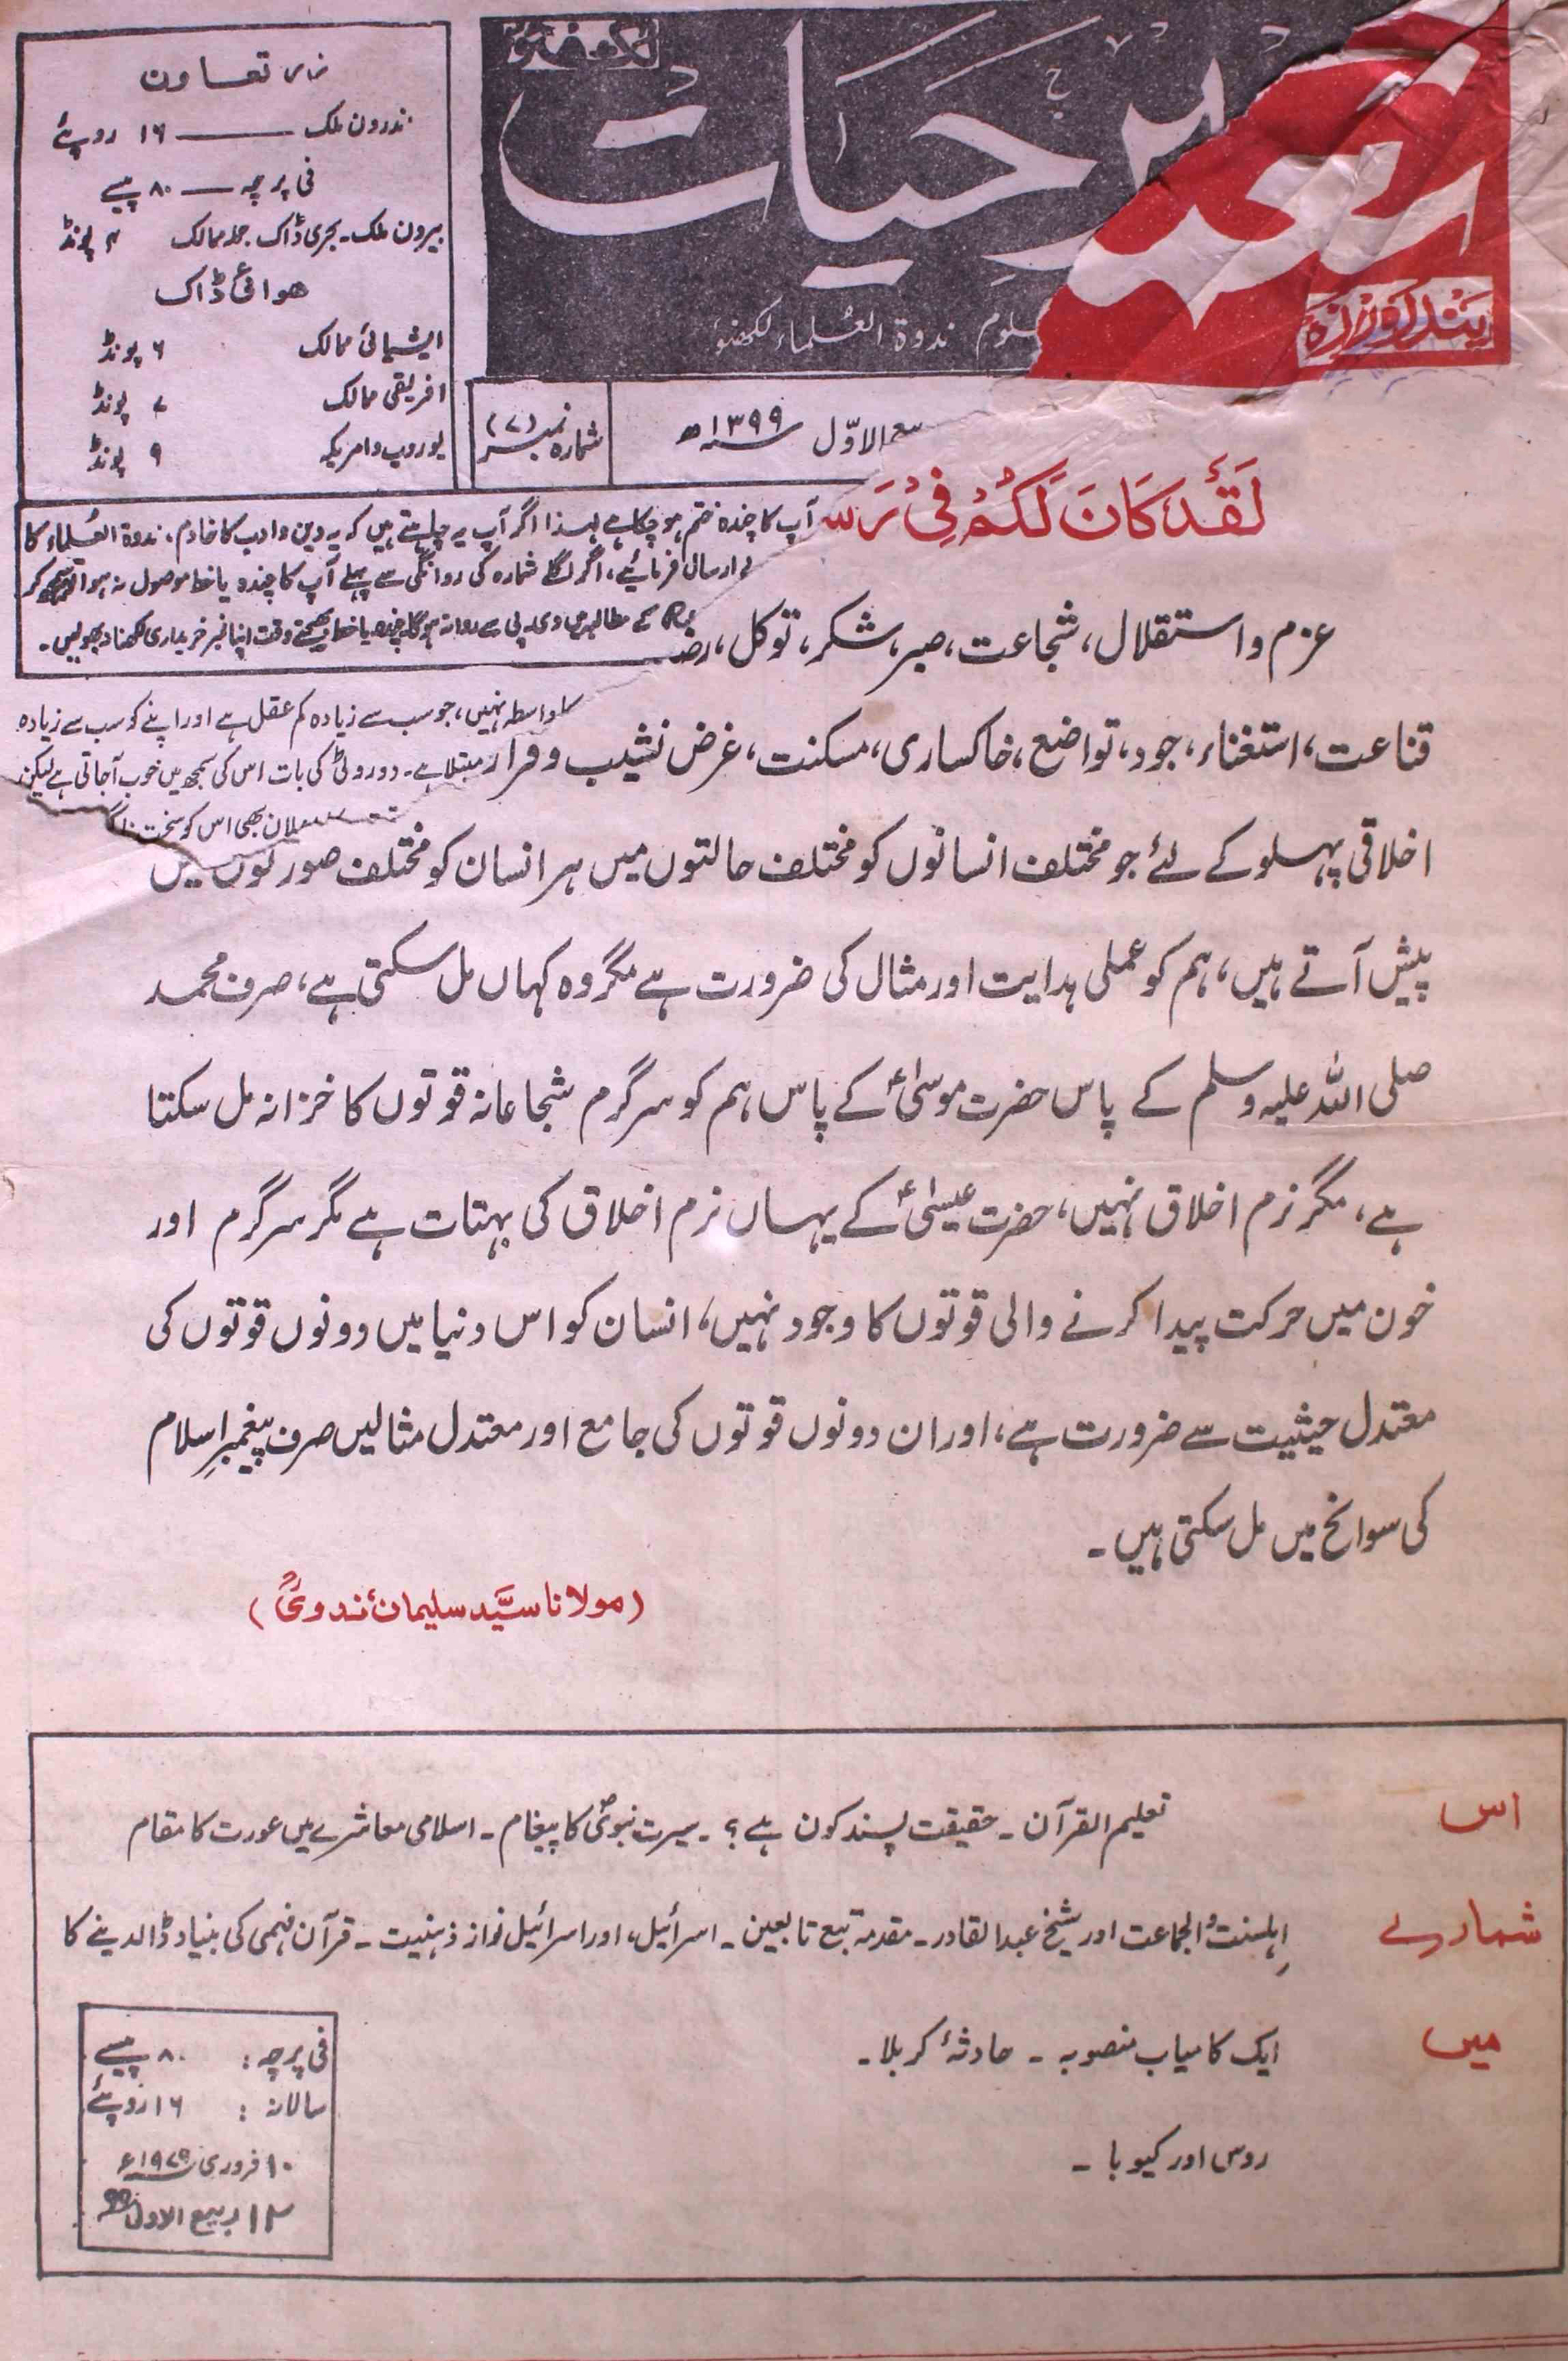 لکھنؤ
تعمیر حیات
پندرہ روزہ
علوم ندوۃ العلماء لکھنؤ
زر تعاون
ندرون ملک ــــ ۱۶ روپئے
فی پرچہ ــــ ۸۰ پیسے
بیرون ملک۔ بحری ڈاک جملہ ممالک ۴ پونڈ
ھوائی ڈاک
ایشیائی ممالک ۶ پونڈ
افریقی ممالک ۷ پونڈ
یوروپ و امریکہ ۹ پونڈ
شمارہ نمبر (۷)
ربیع الاوّل ۱۳۹۹ھ
لَقَدْ کَانَ لَکُمْ فِیْ رَسُ
آپ کا چندہ ختم ہو چکا ہے لہذا اگر آپ یہ چاہتے ہیں کہ یہ دین و ادب کا خادم، ندوۃ العلماء کا
ارسال فرمائیے، اگر اگلے شمارہ کی روانگی سے پہلے آپ کا چندہ یا خط موصول نہ ہوا تو یہ سمجھ کر
کے مطالبہ میں وی پی سے روانہ ہوگا چندہ یا خط بھیجتے وقت اپنا نمبر خریداری لکھنا نہ بھولیں۔
واسطہ نہیں، جو سب سے زیادہ کم عقل ہے اور اپنے کو سب سے زیادہ
مبتلا ہے۔ دو روٹی کی بات اس کی سمجھ میں خوب آجاتی ہے لیکن
بھی اس کو سخت
عزم و استقلال، شجاعت، صبر، شکر، توکل، رضا
قناعت، استغناء، جود، تواضع، خاکساری، مسکنت، غرض نشیب و فراز
اخلاقی پہلو کے لئے جو مختلف انسانوں کو مختلف حالتوں میں ہر انسان کو مختلف صورتوں میں
پیش آتے ہیں، ہم کو عملی ہدایت اور مثال کی ضرورت ہے مگر وہ کہاں مل سکتی ہے، صرف محمد
صلی اللہ علیہ وسلم کے پاس حضرت موسیٰؑ کے پاس ہم کو سرگرم شجاعانہ قوتوں کا خزانہ مل سکتا
ہے، مگر نرم اخلاق نہیں، حضرت عیسیٰؑ کے یہاں نرم اخلاق کی بہتات ہے مگر سرگرم اور
خون میں حرکت پیدا کرنے والی قوتوں کا وجود نہیں، انسان کو اس دنیا میں دونوں قوتوں کی
معتدل حیثیت سے ضرورت ہے، اور ان دونوں قوتوں کی جامع اور معتدل مثالیں صرف پیغمبرِ اسلام
کی سوانح میں مل سکتی ہیں۔
(مولانا سیّد سلیمان ندویؒ)
اس شمارے میں
تعلیم القرآن ۔ حقیقت پسند کون ہے؟ ۔ سیرت نبویؐ کا پیغام ۔ اسلامی معاشرے میں عورت کا مقام
اہلسنت والجماعت اور شیخ عبدالقادر۔ مقدمہ تبع تابعین ۔ اسرائیل، اور اسرائیل نواز ذہنیت ۔ قرآن فہمی کی بنیاد ڈالدینے کا
ایک کامیاب منصوبہ ۔ حادثۂ کربلا۔
روس اور کیوبا ۔
فی پرچہ: ۸۰ پیسے
سالانہ: ۱۶ روپئے
۱۰ فروری ۱۹۷۹ء
۱۲ ربیع الاول ۹۹ھ